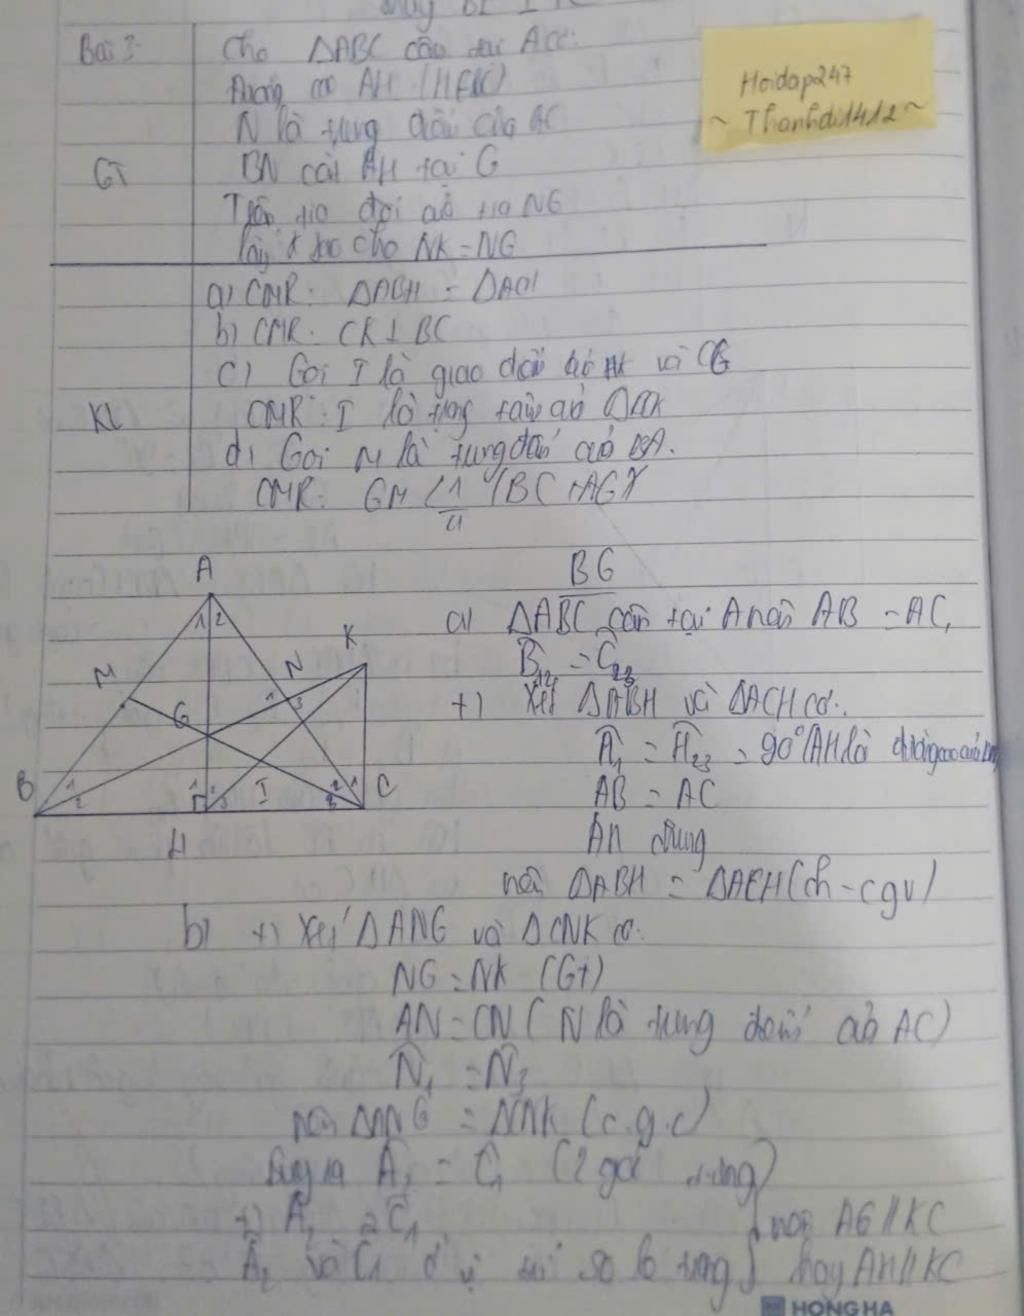 Bài 3
Cho ΔABC cân tại A có:
Đường cao AH (H∈BC)
N là trung điểm của AC
GT
BN cắt AH tại G
Trên tia đối của tia NG
lấy K sao cho NK = NG
a) CMR: ΔABH = ΔACH
b) CMR: CK ⊥ BC
c) Gọi I là giao điểm của HK và CG
KL
CMR: I là trọng tâm của
d) Gọi M là trung điểm của BA.
CMR: GM < 1/4 (BC + AG)
Hoidap247
~ Thanhdi1412 ~
BG
a) ΔABC cân tại A nên AB = AC,
B̂12 = Ĉ23
+) Xét ΔABH và ΔACH có:
Ĥ1 = Ĥ23 = 90° (AH là đường cao của
AB = AC
AH chung
nên ΔABH = ΔACH (ch - cgv)
b) +) Xét ΔANG và ΔCNK có:
NG = NK (Gt)
AN = CN (N là trung điểm của AC)
N̂1 = N̂3
nên ΔANG = (c.g.c)
Suy ra Â2 = Ĉ1 (2 góc tương ứng)
+) Â2 = Ĉ1
nên AG // KC
Â2 và Ĉ1 ở vị trí so le trong
hay AH // KC
A
1 2
M
N
K
1
3
G
B
1
2
1
2
3
I
2
1
3
C
H
HONG HA